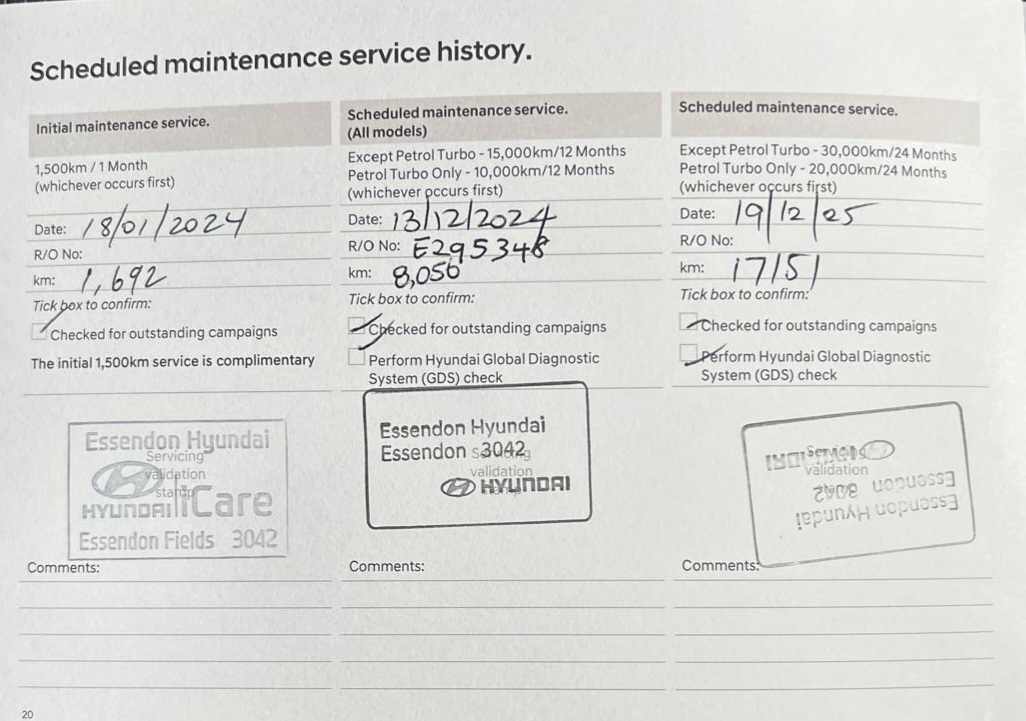 Scheduled maintenance service history.
Initial maintenance service.
1,500km / 1 Month
(whichever occurs first)
Date: 18/01/2024
R/O No:
km: 1,692
Tick box to confirm:
Checked for outstanding campaigns
The initial 1,500km service is complimentary
Essendon Hyundai
Servicing
validation
stamp
iCare
HYUNDAI
Essendon Fields 3042
Comments:
Scheduled maintenance service.
(All models)
Except Petrol Turbo - 15,000km/12 Months
Petrol Turbo Only - 10,000km/12 Months
(whichever occurs first)
Date: 13/12/2024
R/O No: E295348
km: 8,056
Tick box to confirm:
Checked for outstanding campaigns
Perform Hyundai Global Diagnostic
System (GDS) check
Essendon Hyundai
Essendon 3042
validation
HYUNDAI
Comments:
Scheduled maintenance service.
Except Petrol Turbo - 30,000km/24 Months
Petrol Turbo Only - 20,000km/24 Months
(whichever occurs first)
Date: 19/12/25
R/O No:
km: 17151
Tick box to confirm:
Checked for outstanding campaigns
Perform Hyundai Global Diagnostic
System (GDS) check
Servicing
validation
Essendon Hyundai
Essendon 3042
HYUNDAI
Comments:
20